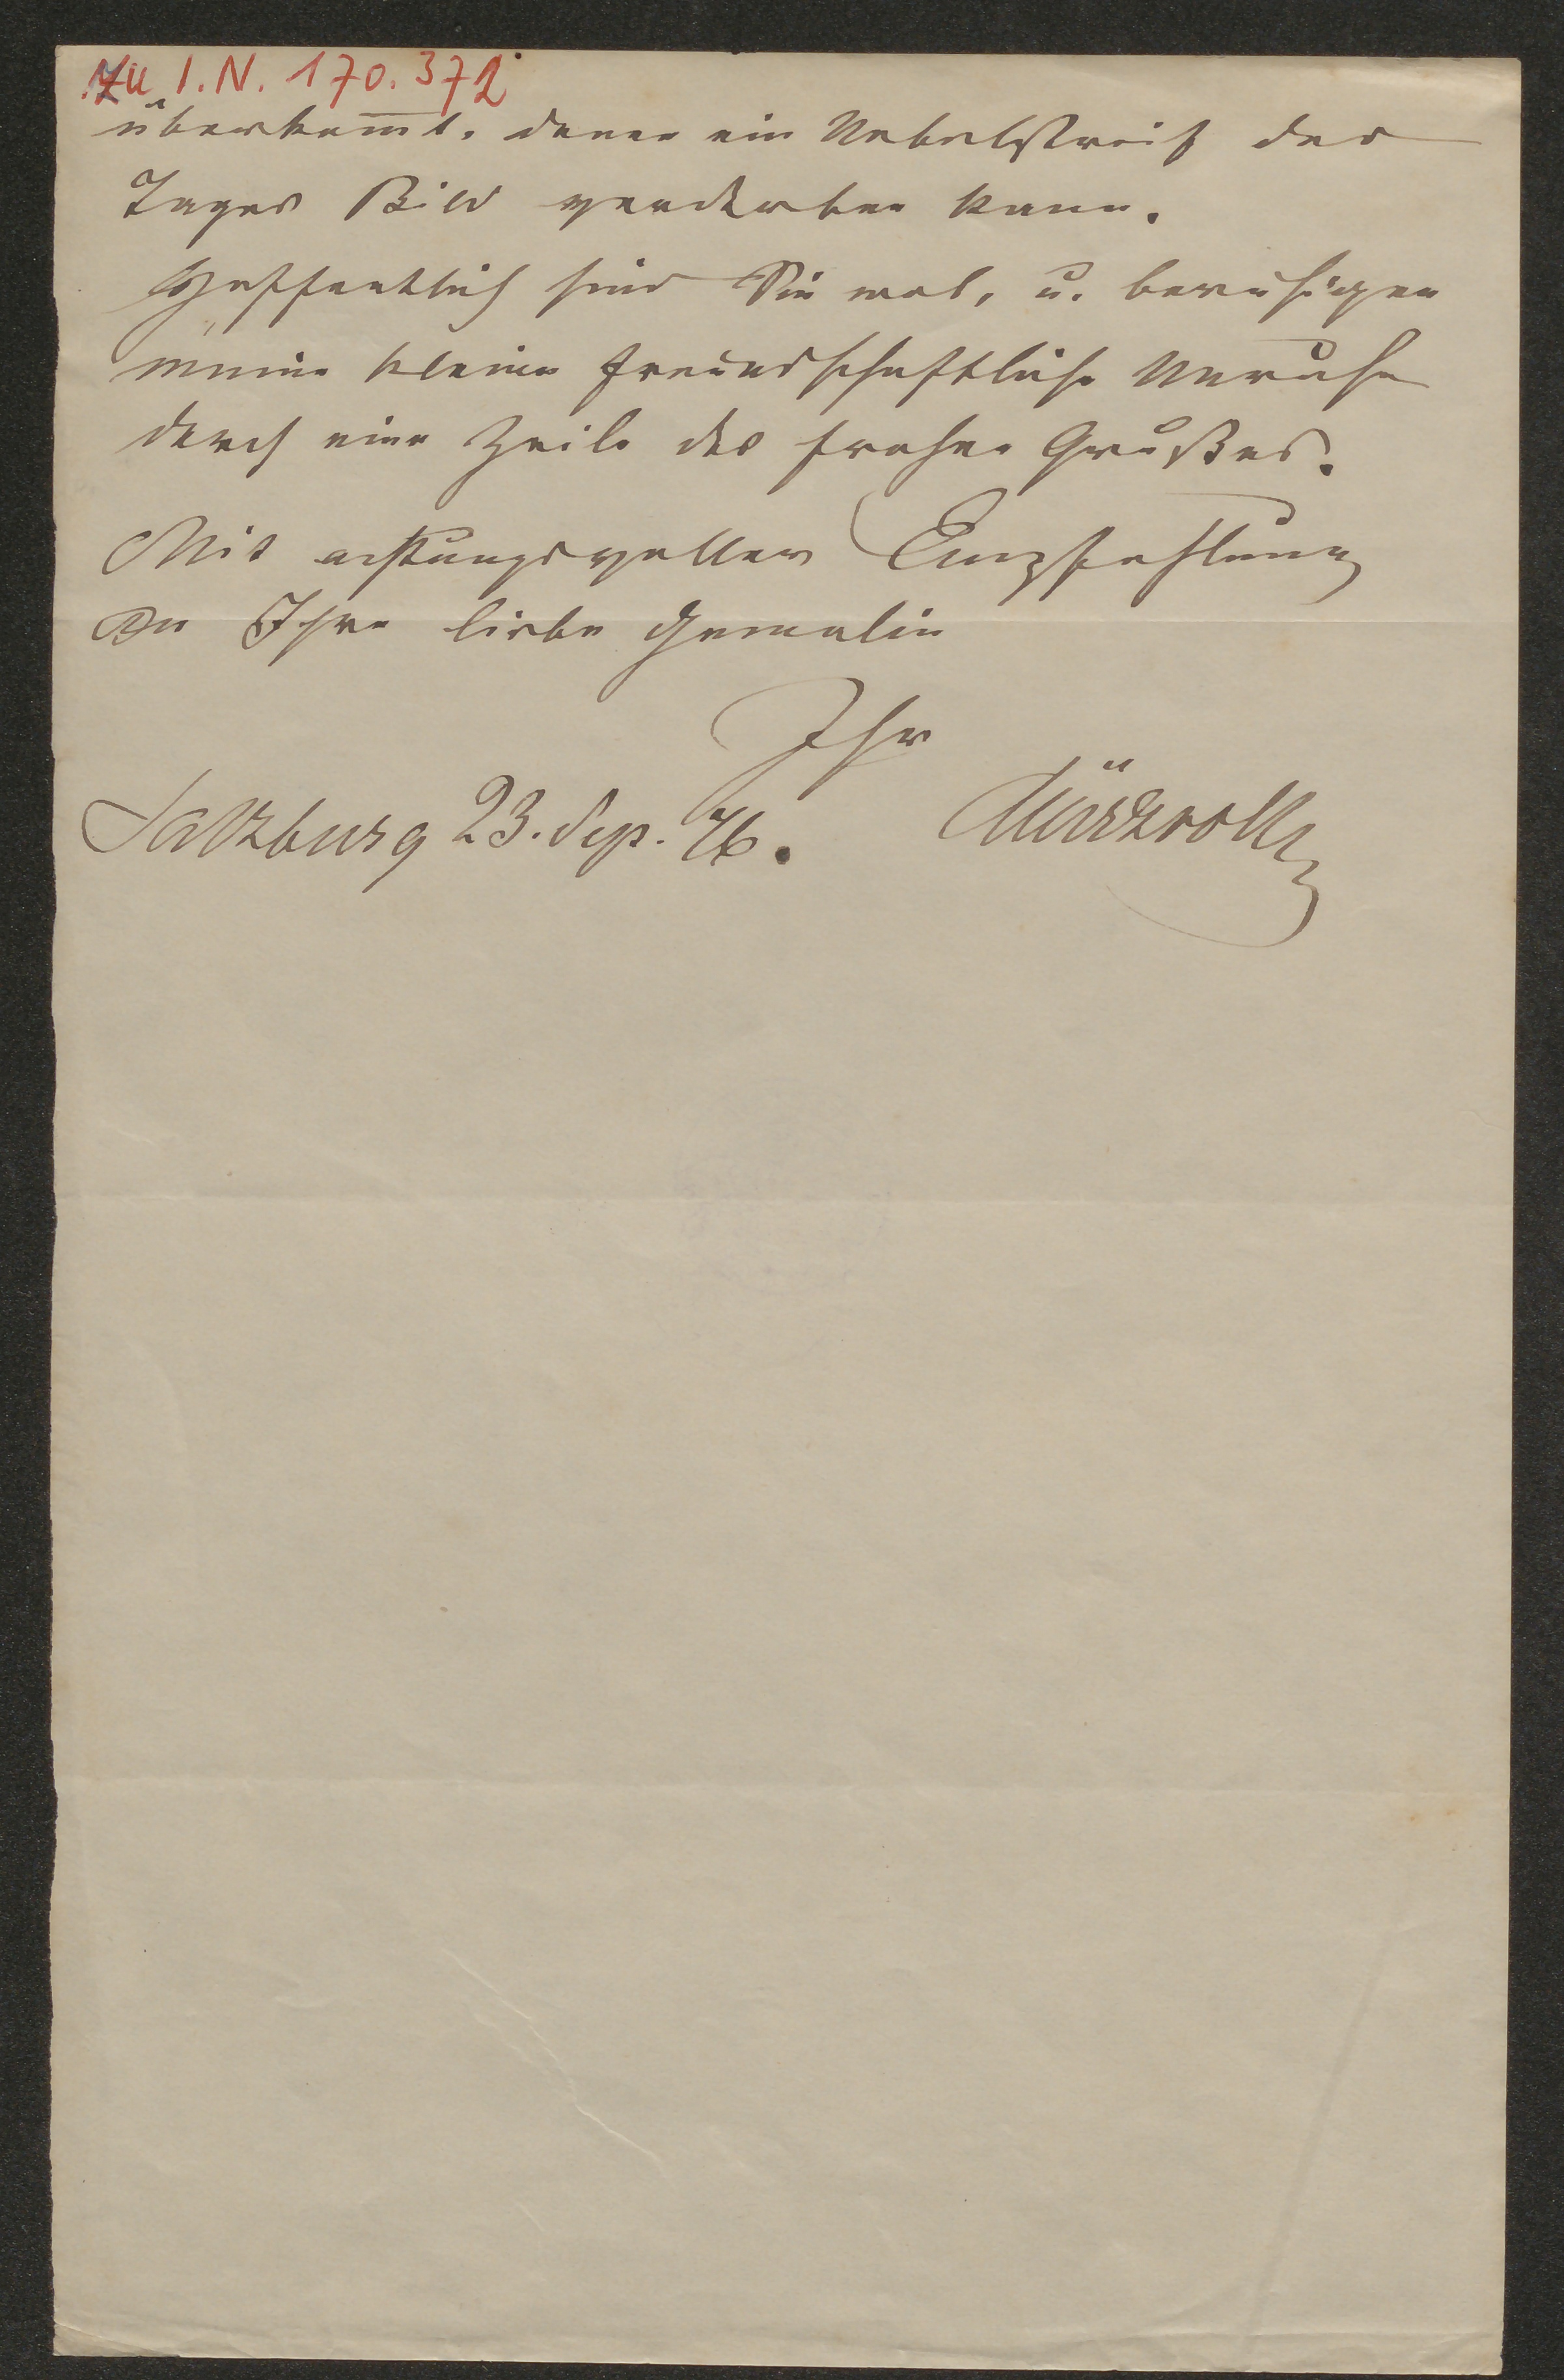 Zu I.N. 170.372
überkom̅t, denen ein Nebelstreif des
Tages Bild verderben kann.
Hoffentlich sind Sie wol, u. beruhigen
meine kleine freundschaftliche Unruhe
durch eine Zeile des frohen Grußes.
Mit achtungsvoller Empfehlung
an Ihre liebe Gemalin
Ihr
Salzburg 23. Sep. 76. Märzroth